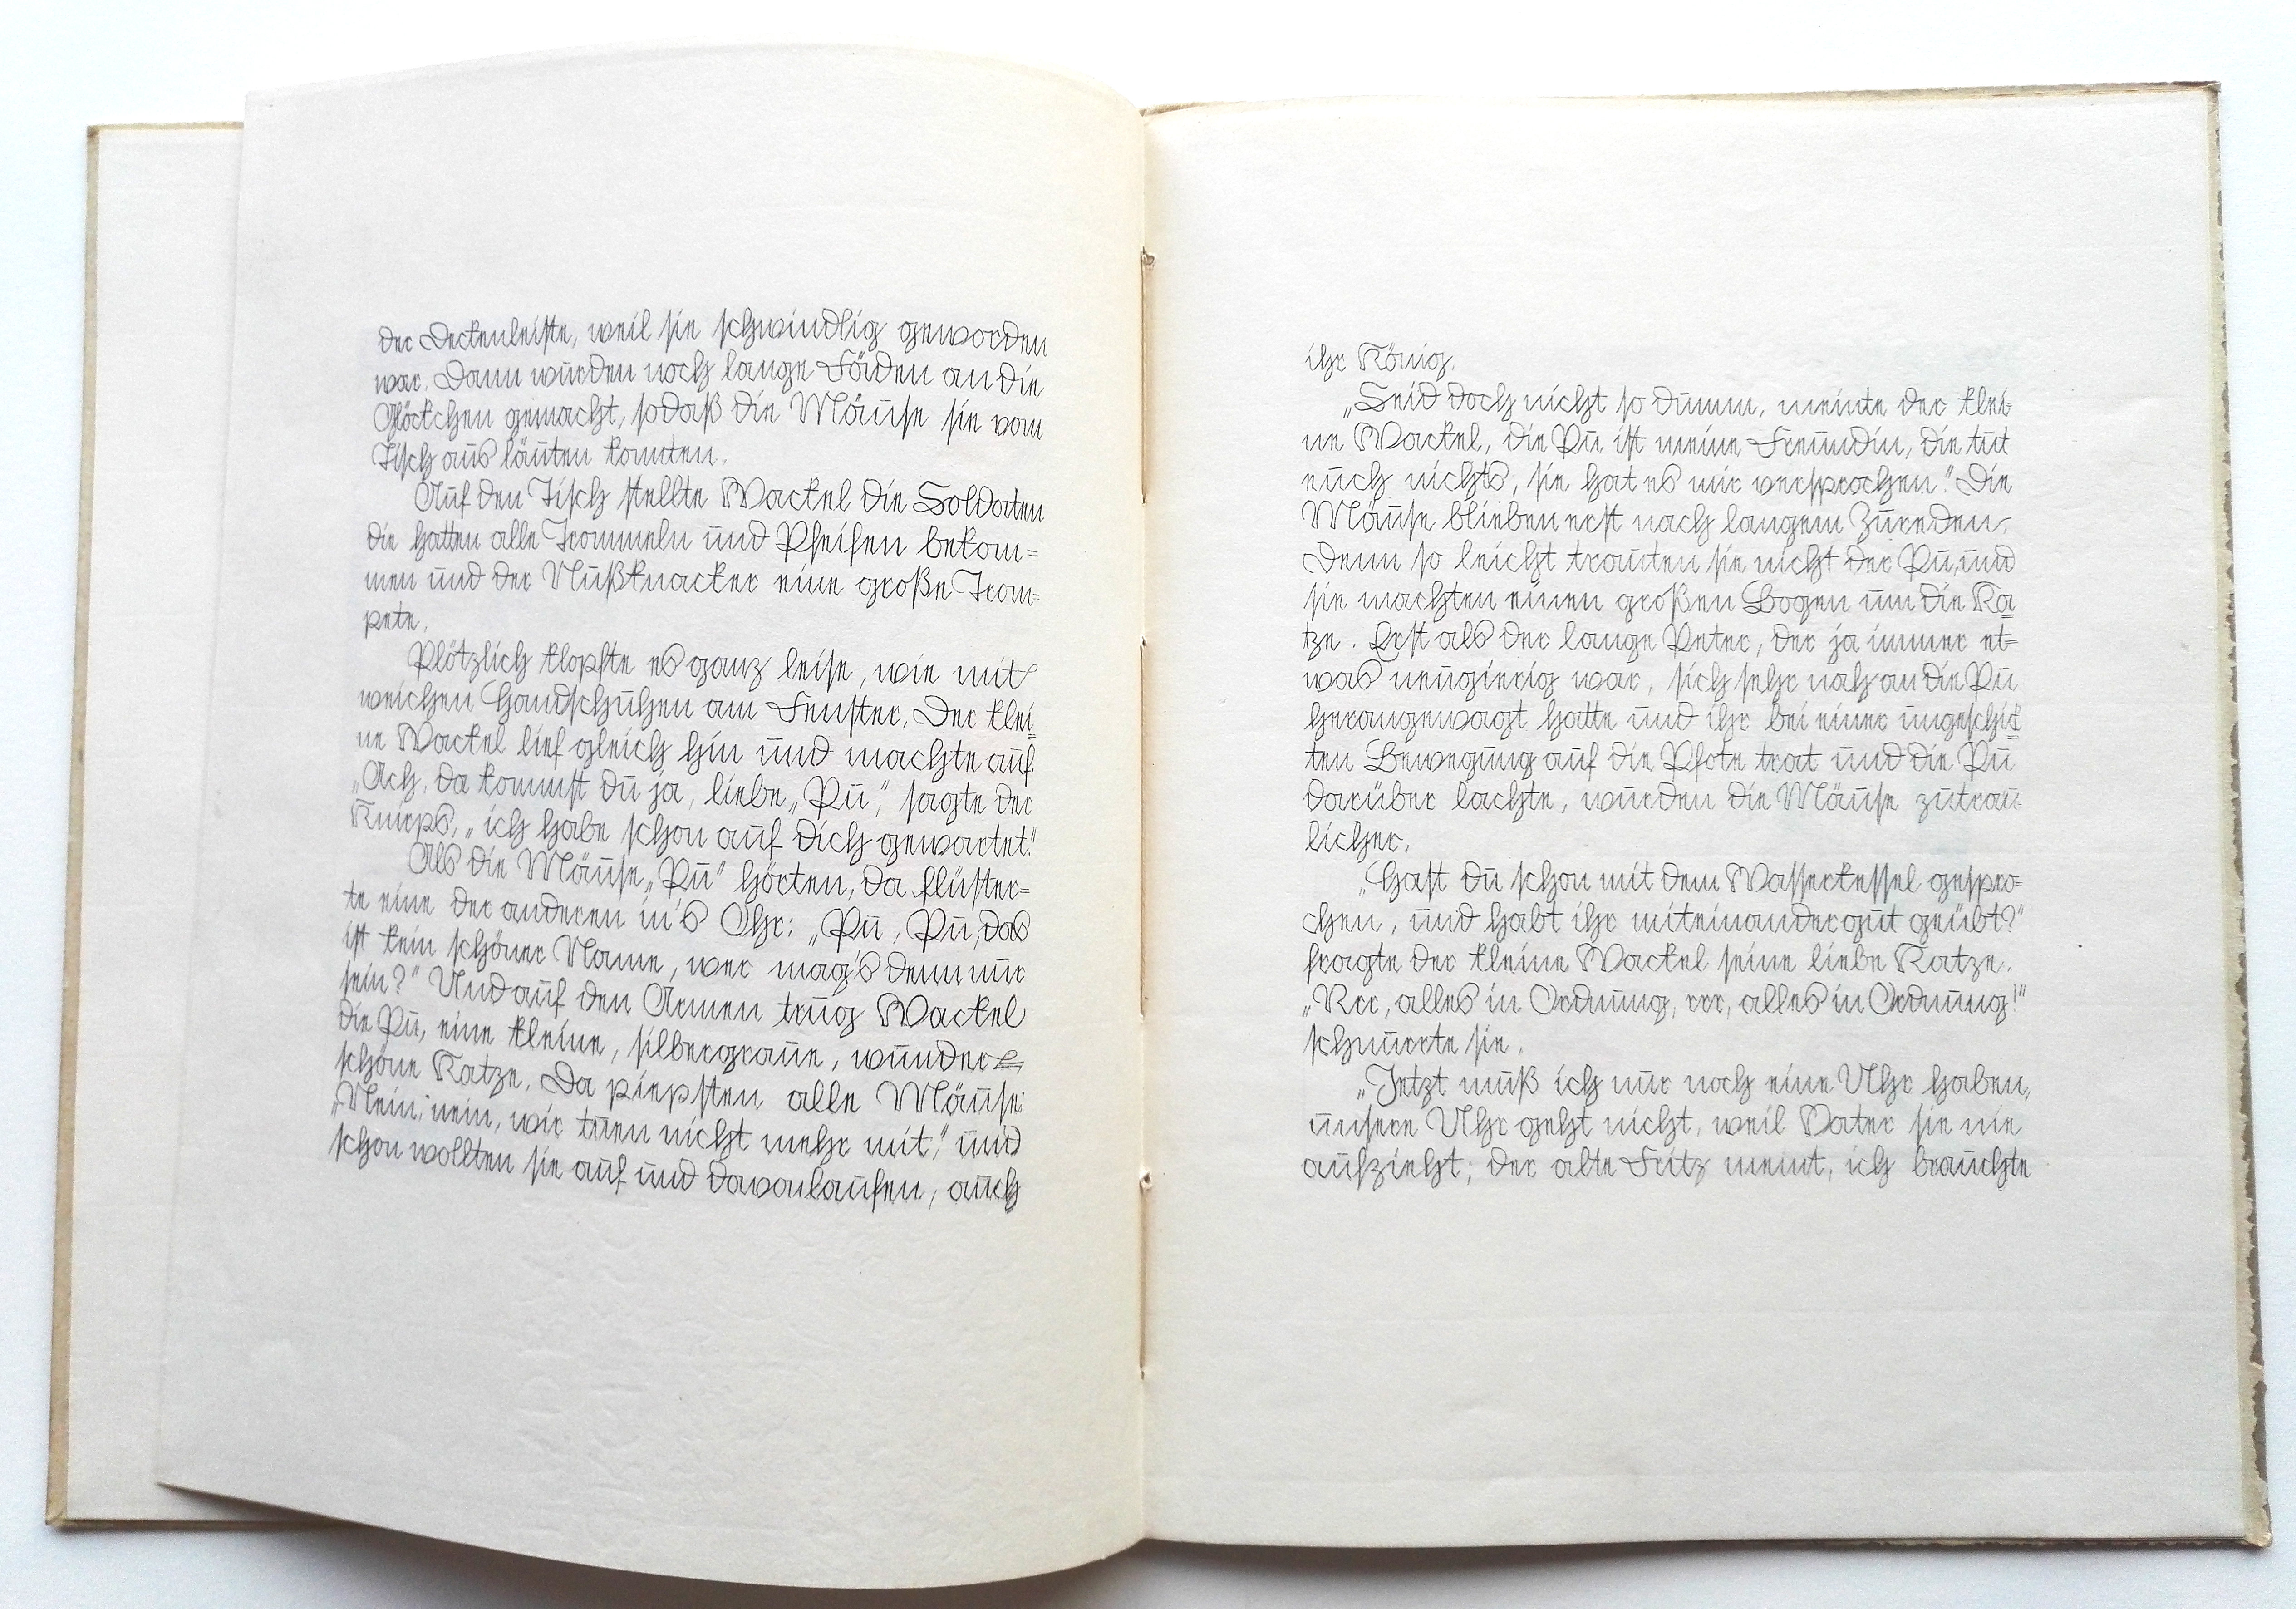 der Deckenleiste, weil sie schwindlig geworden
war. Dann wurden noch lange Fäden an die
Glöckchen gemacht, sodaß die Mäuse sie vom
Tisch aus läuten konnten.
Auf den Tisch stellte Wackel die Soldaten
die hatten alle Trommeln und Pfeifen bekom=
men und der Nußknacker eine große Trom=
pete.
Plötzlich klopfte es ganz leise, wie mit
weichen Handschuhen am Fenster. Der klei=
ne Wackel lief gleich hin und machte auf.
„Ach, da kommst du ja, liebe „Pu“, sagte der
Knirps, „ich habe schon auf dich gewartet.“
Als die Mäuse „Pu“ hörten, da flüster=
te eine der anderen in's Ohr: „Pu, Pu, das
ist kein schöner Name, wer mag's denn nur
sein?“ Und auf den Armen trug Wackel
die Pu, eine kleine, silbergraue, wunder=
schöne Katze. Da piepsten alle Mäuse:
„Nein, nein, wir tuen nicht mehr mit,“ und
schon wollten sie auf und davonlaufen, auch
ihr König.
„Seid doch nicht so dumm, meinte der klei-
ne Wackel, die Pu ist meine Freundin, die tut
euch nichts, sie hat es mir versprochen.“ Die
Mäuse blieben erst nach langem Zureden,
denn so leicht trauten sie nicht der Pu, und
sie machten einen großen Bogen um die Ka=
tze. Erst als der lange Peter, der ja immer et=
was neugierig war, sich sehr nah an die Pu
herangewagt hatte und ihr bei einer ungeschick=
ten Bewegung auf die Pfote trat und die Pu
darüber lachte, wurden die Mäuse zutrau=
licher.
„Hast du schon mit dem Wasserkessel gespro=
chen, und habt ihr miteinander gut geübt?“
fragte der kleine Wackel seine liebe Katze.
„Rrr, alles in Ordnung, rrr, alles in Ordnung!“
schnurrte sie.
„Jetzt muß ich nur noch eine Uhr haben,
unsere Uhr geht nicht, weil Vater sie nie
aufzieht; der alte Fritz meint, ich brauchte